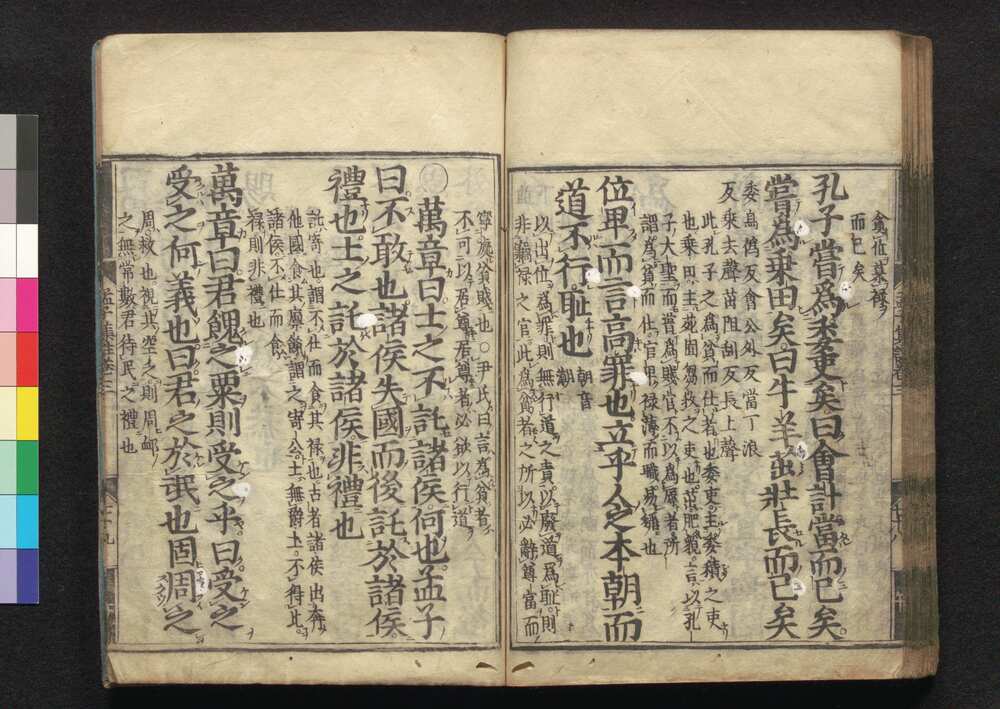 貪位慕祿
而已矣
孔子嘗爲委吏矣曰會計當而已矣
嘗爲乗田矣曰牛羊茁壯長而已矣
委烏僞反會公外反當丁浪
反乗去聲茁阻刮反長上聲
此孔子之爲貧而仕者也委吏主委積之吏
也乗田主苑囿芻牧之吏也茁肥貌言以孔
子大聖而嘗爲賤官不以爲辱者所
謂爲貧而仕官卑祿薄而職易稱也
位卑而言高罪也立乎人之本朝而
道不行耻也
朝音
潮
以出位爲罪則無行道之責以廢道爲耻則
非竊祿之官此爲貧者之所以必辭尊富而
寧處貧賤也○尹氏曰言爲貧者
不可以居尊居尊者必欲以行道
萬章曰士之不託諸侯何也孟子
曰不敢也諸侯失國而後託於諸侯
禮也士之託於諸侯非禮也
託寄也謂不仕而食其祿也古者諸侯出奔
他國食其廩餼謂之寄公士無爵土不得比
諸侯不仕而食
祿則非禮也
萬章曰君餽之粟則受之乎曰受之
受之何義也曰君之於氓也固周之
周救也視其空乏則周卹
之無常數君待民之禮也